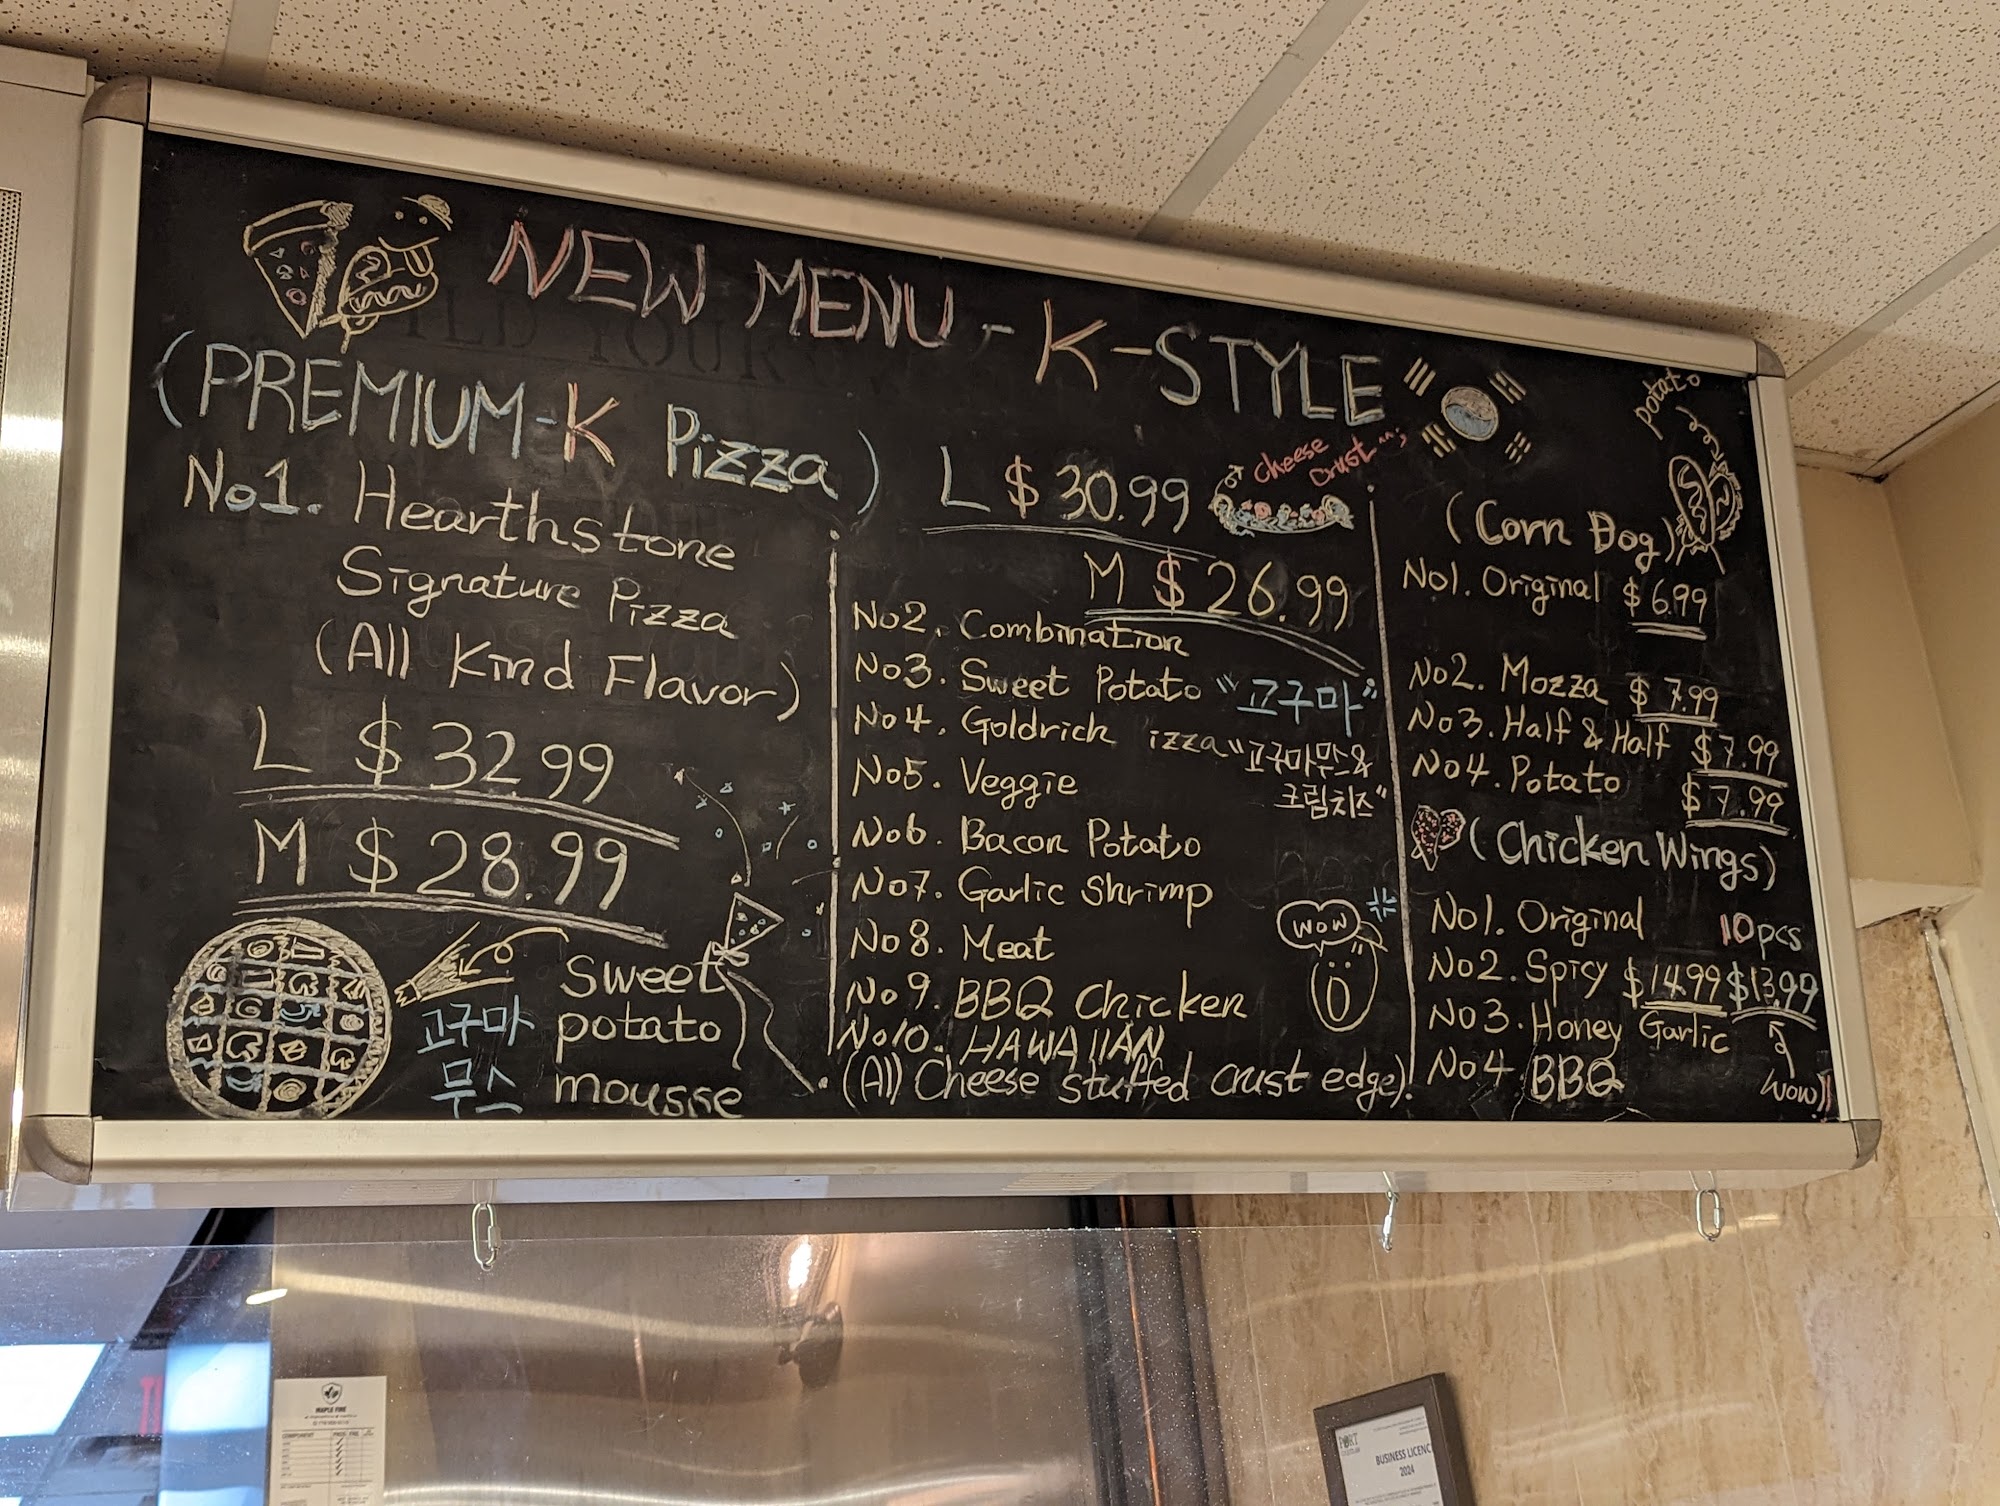 NEW MENU - K-STYLE
(PREMIUM-K Pizza)
No1. Hearthstone
Signature Pizza
(All Kind Flavor)
L $32.99
M $28.99
고구마
무스
sweet
potato
mousse
L $30.99
cheese
crust ^^;
M $26.99
No2. Combination
No3. Sweet Potato "고구마"
No4. Goldrich izza "고구마무스&
크림치즈"
No5. Veggie
No6. Bacon Potato
No7. Garlic Shrimp
No8. Meat
No9. BBQ Chicken
No10. HAWAIIAN
(All Cheese stuffed crust edge).
WOW
potato
(Corn Dog)
No1. Original $6.99
No2. Mozza $7.99
No3. Half & Half $7.99
No4. Potato $7.99
(Chicken Wings)
No1. Original 10pcs
No2. Spicy $14.99 $13.99
No3. Honey Garlic
No4 BBQ
Wow!!
MAPLE FIRE
COMPONENT
PORT
BUSINESS LICENC
2024